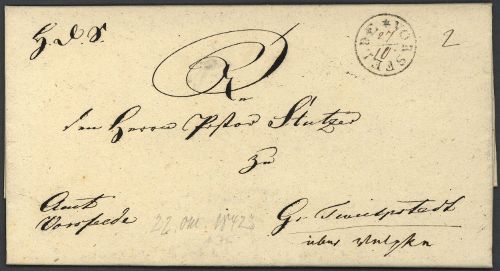 H. D. S.
VORSFELDE
27/10
2
An
den Herrn Pastor Stutzer
zu
Amt
Vorsfelde
22. Okt. 1842
Gr. Twülpstedt
über